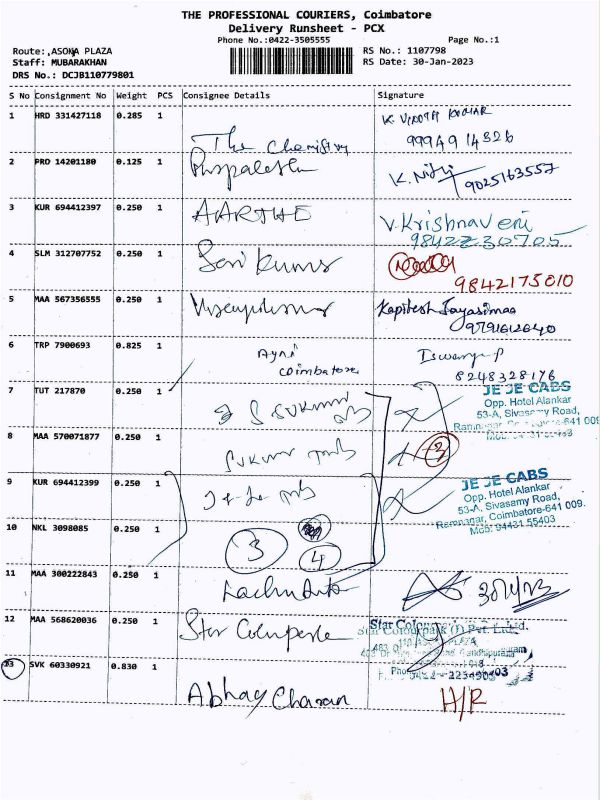 THE PROFESSIONAL COURIERS, Coimbatore
Delivery Runsheet - PCX
Phone No.:0422-3505555
Page No.:1
Route:,ASOKA PLAZA
RS No.: 1107798
Staff: MUBARAKHAN
RS Date: 30-Jan-2023
DRS No.: DCJB110779801
S No Consignment No Weight PCS Consignee Details Signature
1 HRD 331427118 0.285 1 The Chemistry K. VINOTH KUMAR
9994914326
2 PRO 14201180 0.125 1 Pushpalatha K. Nithi 9025163557
3 KUR 694412397 0.250 1 AARTHE V. Krishnaveni
9842230705
4 SLM 312707752 0.250 1 Sasi Kumar
9842175010
5 MAA 567356555 0.250 1 Kapilesh Jayasimaa
9791612640
6 TRP 7900693 0.825 1 Coimbatore Iswarya P
8248328176
7 TUT 217870 0.250 1 S SUKUMAR
JE JE CABS
Opp. Hotel Alankar
53-A, Sivasamy Road,
8 MAA 570071877 0.250 1 SUKUMAR 3
9 KUR 694412399 0.250 1
JE JE CABS
Opp. Hotel Alankar
53-A, Sivasamy Road,
Ramnagar, Coimbatore-641 009.
Mob: 94431 55403
10 NKL 3098085 0.250 1 3 4
11 MAA 300222843 0.250 1
12 MAA 568620036 0.250 1 Star Colourpark
Star Colourpark (I) Pvt. Ltd.
13 SVK 60330921 0.830 1 Abhay Charan H/R